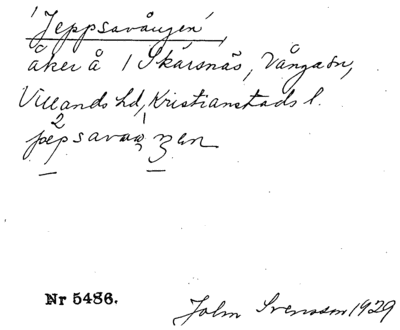 'Jeppsavången',
åker å 1 Skårsnäs, Vånga sn,
Villands hd, Kristianstads l.
Nr 5486.
John Svensson 1929